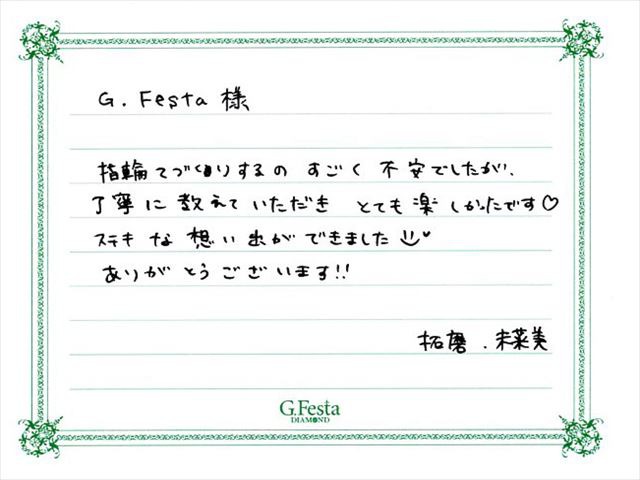 G. Festa 様
指輪てづくりするの すごく 不安でしたが、
丁寧に 教えて いただき とても 楽しかったです♡
ステキ な 想い出ができました
ありがとうございます!!
拓磨 . 未菜美
G.Festa
DIAMOND